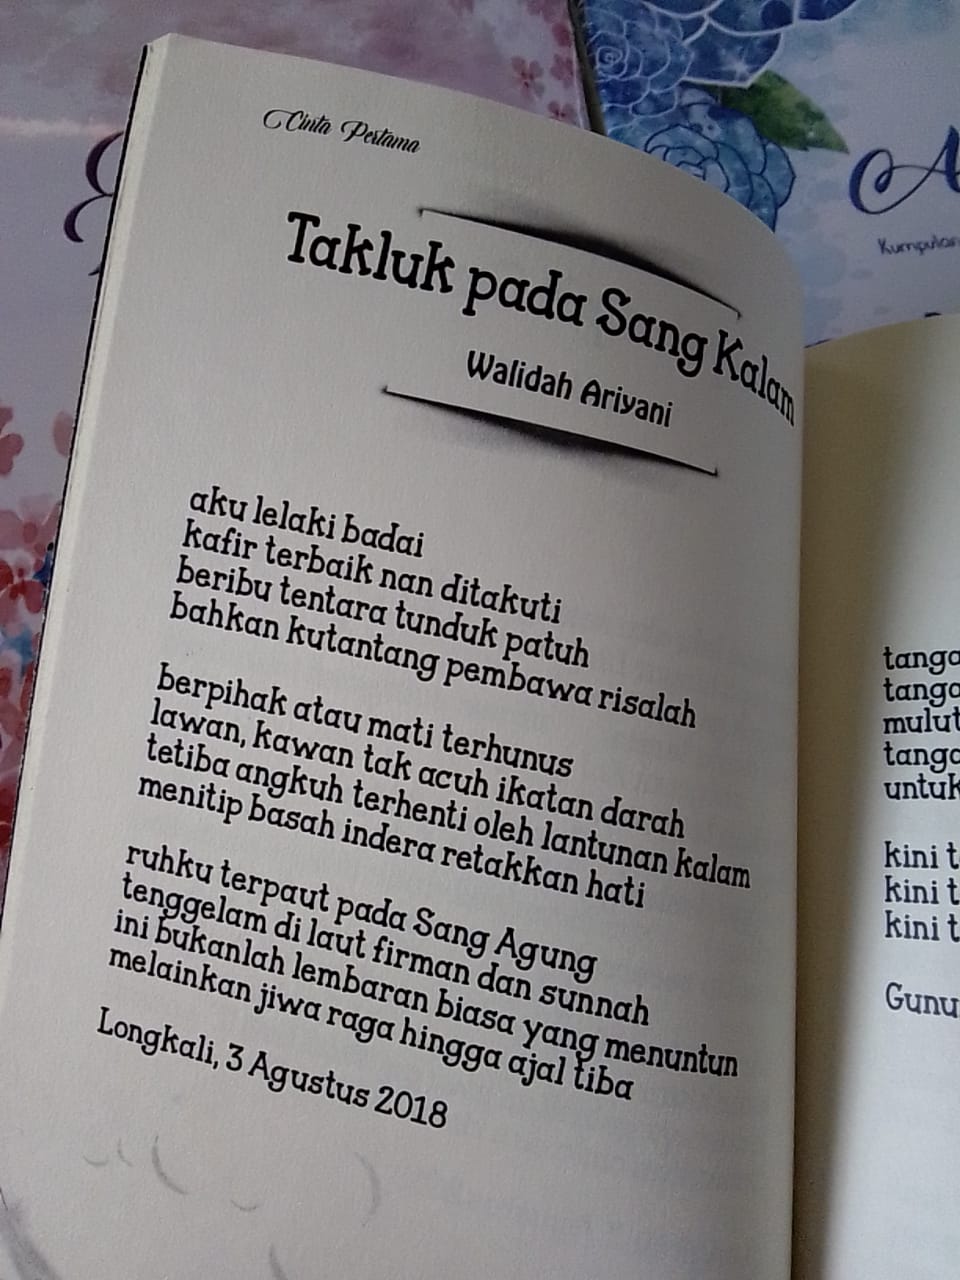 Cinta Pertama
Takluk pada Sang Kalam
Walidah Ariyani
aku lelaki badai
kafir terbaik nan ditakuti
beribu tentara tunduk patuh
bahkan kutantang pembawa risalah
berpihak atau mati terhunus
lawan, kawan tak acuh ikatan darah
tetiba angkuh terhenti oleh lantunan kalam
menitip basah indera retakkan hati
ruhku terpaut pada Sang Agung
tenggelam di laut firman dan sunnah
ini bukanlah lembaran biasa yang menuntun
melainkan jiwa raga hingga ajal tiba
Longkali, 3 Agustus 2018
mulut
untuk
kini t
kini t
kini t